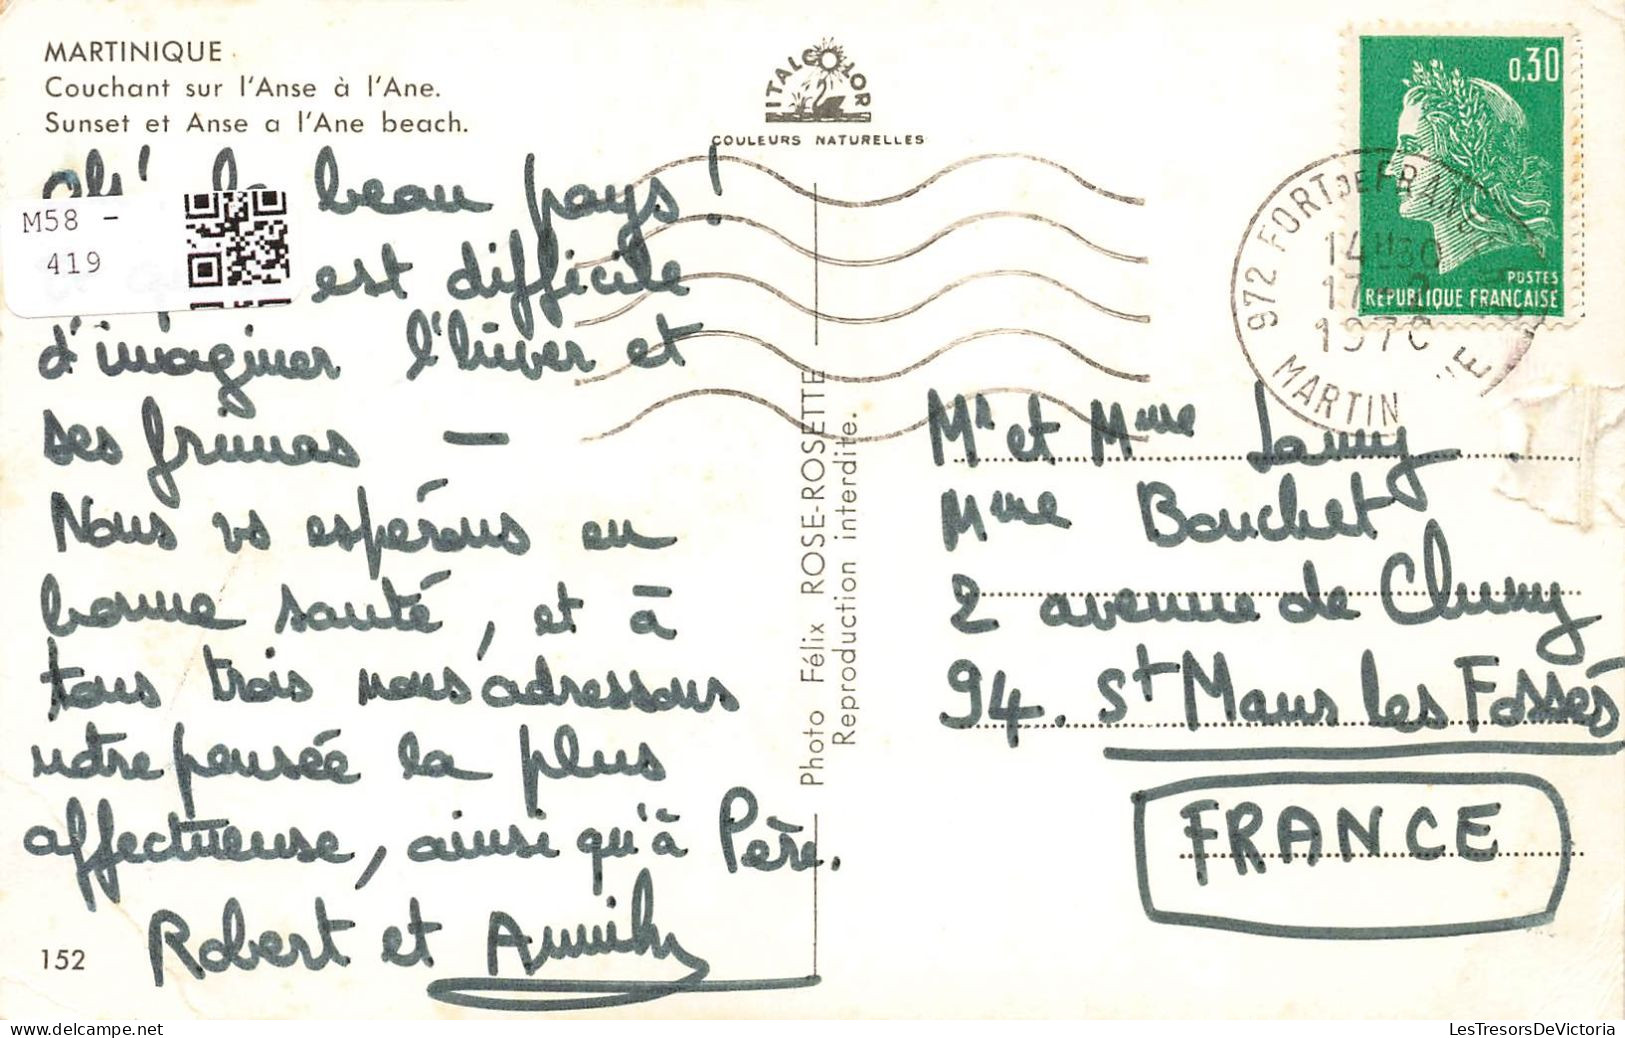 MARTINIQUE
Couchant sur l'Anse à l'Ane.
Sunset et Anse a l'Ane beach.
ITALCOLOR
COULEURS NATURELLES
0,30
POSTES
REPUBLIQUE FRANÇAISE
972 FORT DE FRANCE
14H30
17
1970
MARTIN
M58 -
419
Oh! le beau pays!
est difficile
d'imaginer l'hiver et
ses frimas —
Nous vs espérons en
bonne santé, et à
tous trois nous adressons
notre pensée la plus
affectueuse, ainsi qu'à Père.
Robert et
152
Photo Félix ROSE-ROSETTE
Reproduction interdite.
Mr et Mme Lamy
Mme Bouchet
2 avenue de Cluny
94. St Maur les Fossés
FRANCE
LesTresorsDeVictoria